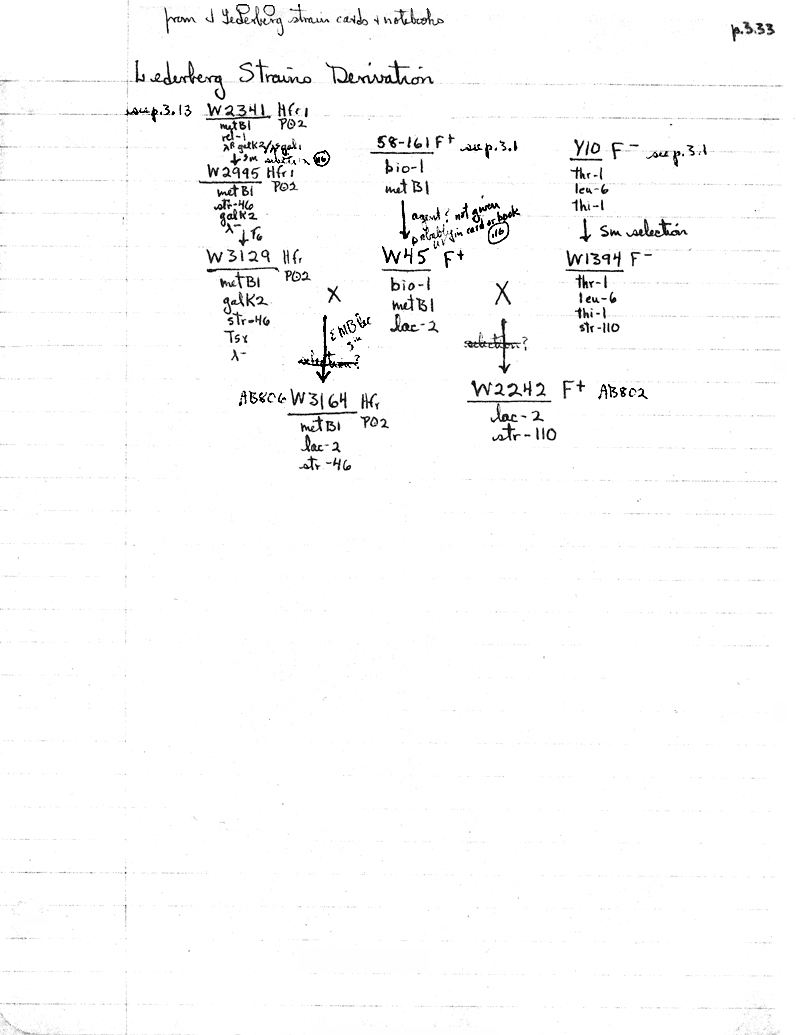 from J Lederberg strain cards + notebooks
p.3.33
Lederberg Strains Derivation
see p.3.13 W2341 Hfr1
PO2
metB1
rel-1
λR galK2/λS gal1
↓ Sm selection 116
W2995 Hfr1
PO2
metB1
str-46
galK2
λ-
↓ T6
W3129 Hfr
PO2
metB1
galK2
str-46
Tsx
λ-
X
58-161 F+ see p.3.1
bio-1
metB1
↓ agent? not given
probably in card or book
UV 116
W45 F+
bio-1
metB1
lac-2
X
Y10 F- see p.3.1
thr-1
leu-6
thi-1
↓ Sm selection
W1394 F-
thr-1
leu-6
thi-1
str-110
EMB lac
Sm
selection?
AB806 W3164 Hfr
PO2
metB1
lac-2
str-46
selection?
W2242 F+ AB802
lac-2
str-110